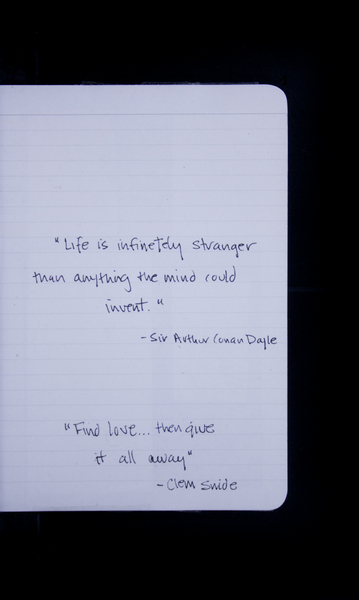 "Life is infinetely stranger
than anything the mind could
invent."
- Sir Arthur Conan Doyle
"Find love... then give
it all away"
- Clem Snide